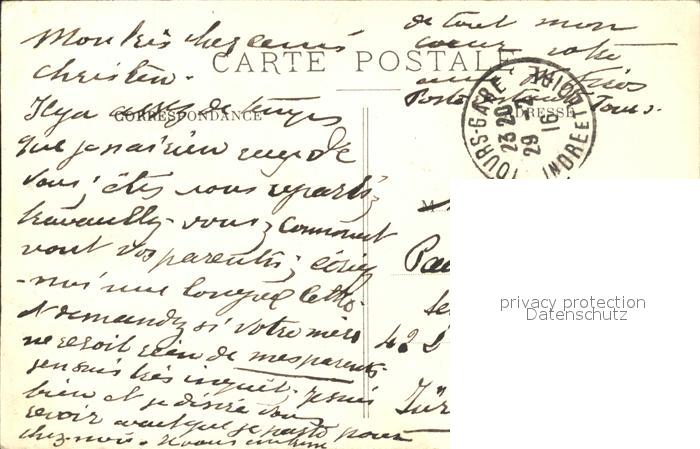 Mon très cher ami
Christen.
CARTE POSTALE
CORRESPONDANCE
ADRESSE
Il y a assez de temps
que je n'ai rien reçu de
vous; êtes vous reparti,
travaillez-vous; comment
vont vos parents; écrivez
-moi une longue lettre.
et demandez si votre mère
ne reçoit rien de mes parents
j'en suis très inquiet. Je suis
bien et je désire vous
revoir avant que je parte pour
chez-moi.
de tout mon
cœur votre
ami
Poste Tours.
TOURS-GARE
23 20
29 2
16
INDRE ET LOIRE
M
Pau
42
Zür
privacy protection
Datenschutz